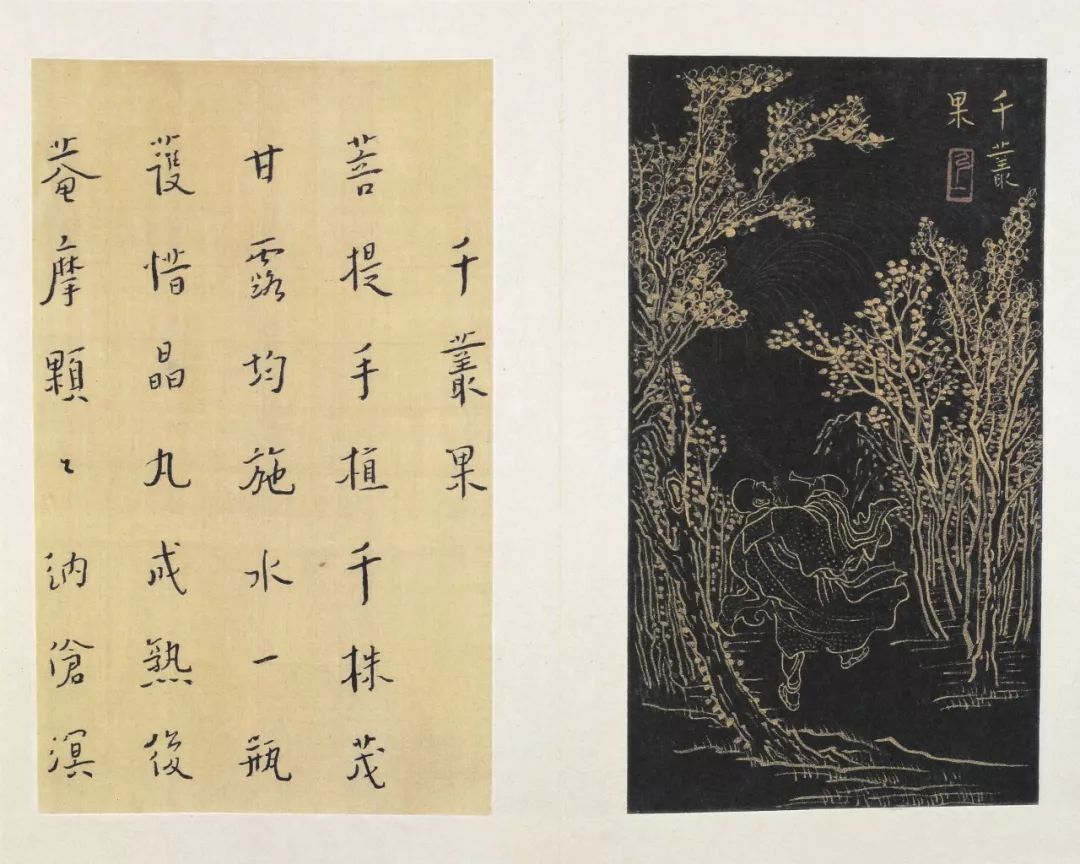 千叢
果
千叢果
菩提手植千株茂
甘露均施水一瓶
護惜晶丸成熟後
菴摩顆〻納滄溟